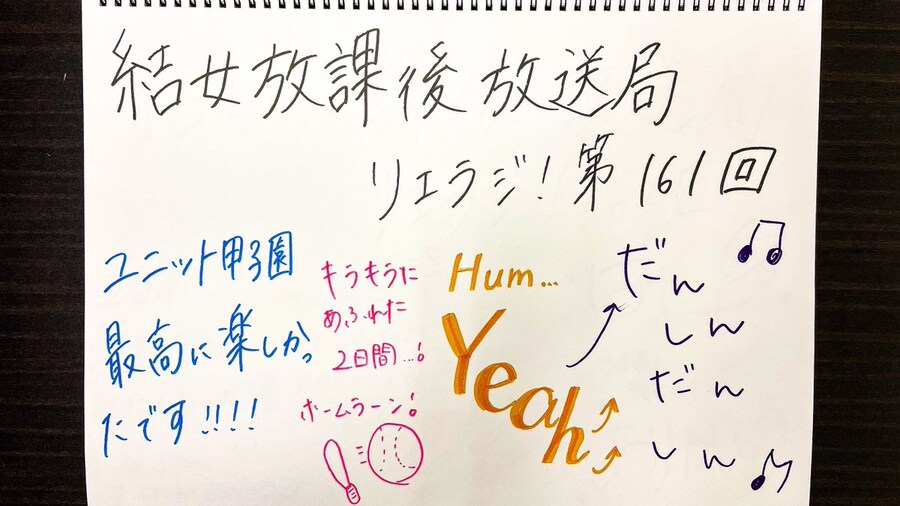 結女放課後放送局
リエラジ!第161回
ユニット甲子園
最高に楽しかっ
たです!!!!
キラキラに
あふれた
2日間...!
ホームラーン!
Hum...
Yeah
だん
しん
だん
しん